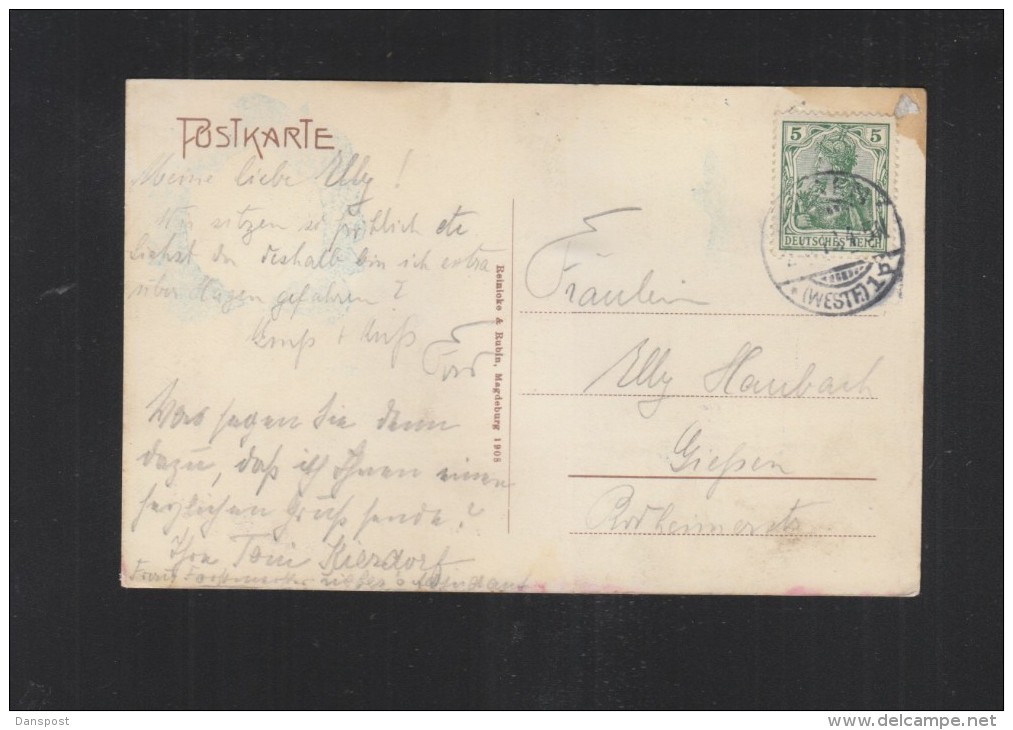 POSTKARTE
Meine liebe Elly!
Wir sitzen so fröhlich etc
Siehst du deshalb bin ich extra
über Hagen gefahren?
Gruß + Kuß
Was sagen Sie denn
dazu, daß ich Ihnen einen
herzlichen Gruß sende?
Ihre Toni Kierdorf
Reinicke & Rubin, Magdeburg 1908
5 5
DEUTSCHES REICH
* (WESTF) 1
Fräulein
Elly Haubach
Gießen
Danspost
delcampe.net